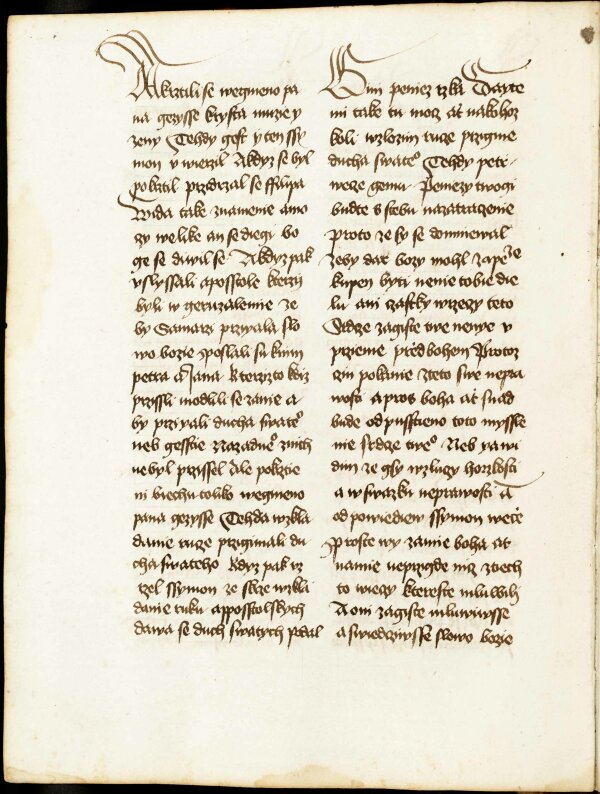 A krztili se wegmeno pa
na gezysse krysta muzie y
zeny Tehdy gest y ten ssy
mon y wierzil A kdyz se byl
pokrztil przidrzal se ffilipa
Wida take znamenie a mo
czy welike an se diegi bo
ge se diwil se A kdyz pak
vslyssali aposstole kterzy
byli w geruzalemie ze
by Samarzi przyiala slo
wo bozie poslali su k nim
petra a Jana kterzizto kdiz
przissli modlili se za nie a
by przyyali ducha swateho
neb gesstie na zadneho z nich
nebyl przissel Ale pokrztie
ni biechu toliko wegmeno
pana gezysse Tehda wzkla
danie ruze przigimali du
cha swateho Kdyz pak vz
rzel ssymon ze skrze wzkla
danie ruku apposstolskych
dawa se duch swatych podal
gim peniez rzka Dayte
mi take tu mocz at na kohoz
koli wzlozim ruze przigme
ducha swateho Tehdy petr
wecze gemu Penezy twogi
budte s tebu na zatraczenie
Proto ze sy se domniewal
zeby dar bozy mohl za penieze
kupen byti nenie tobie die
lu ani czastky w rzeczy teto
Srdcze zagiste twe nenye v
przieme przed bohem Protoz
czin pokanie z teto swe nepra
wosti a pros boha at snad
bude odpusstieno toto myssle
nie srdcze tweho Neb ya wi
dim ze gsy w zluczy horzkosti
a w swazku neprawosti A
od powiediew ssymon wecze
Proste wy za mie boha at
na mie neprzigde nicz z tiech
to wieczy ktereste mluwili
A oni zagiste mluwiwsse
a swiedcziwsse slowo bozie